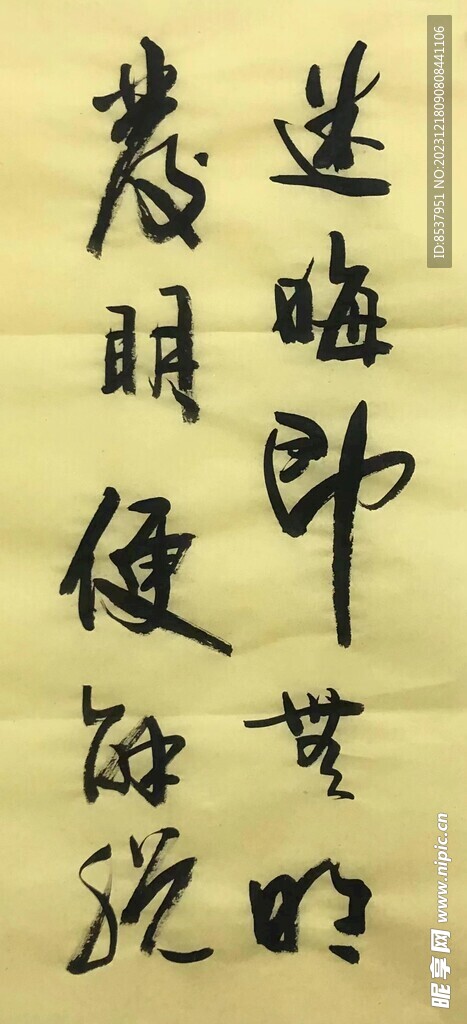 迷晦即無明
發明便解脱
ID:8537951 NO:20231218090808441106
昵享网 www.nipic.cn